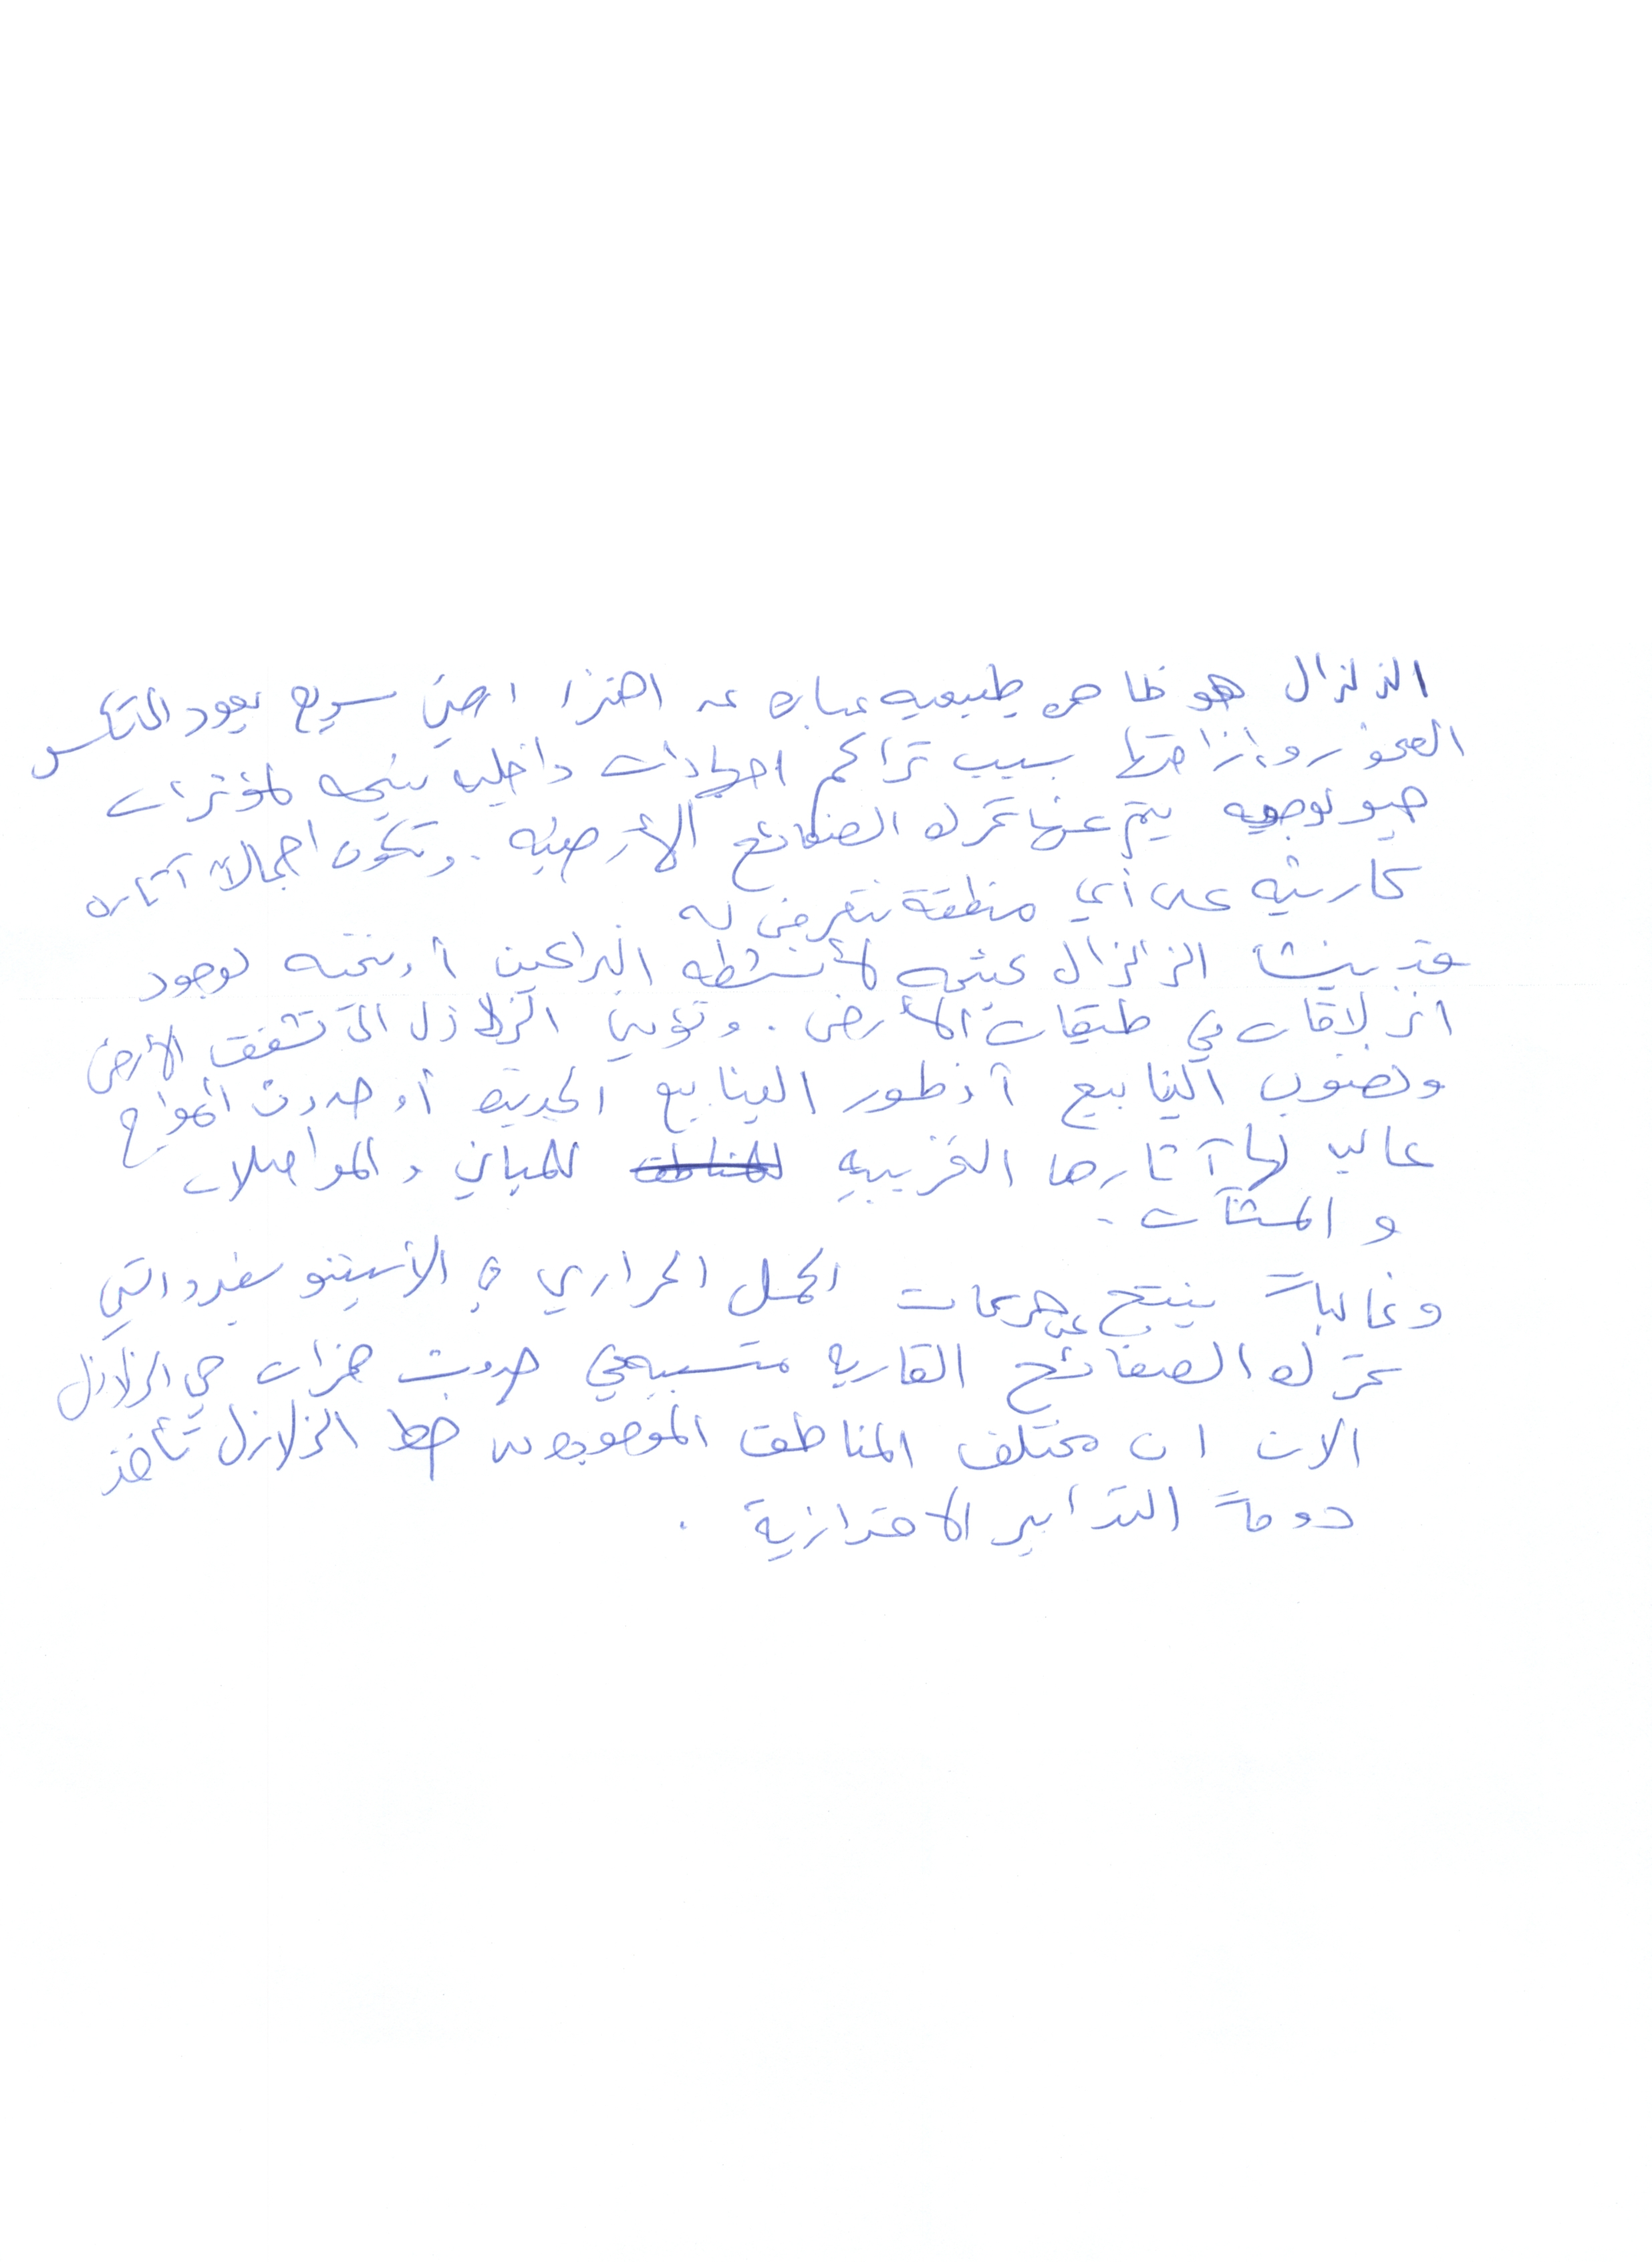 الزلزال هو ظاهره طبيعيه عباره عن اهتزا ارضي سريع يعود الى تكسر
الصخور وازاحتها بسبب تراكم اجهادات داخليه نتيجه لمؤثرات
جيولوجيه يتم عنها تحرك الصفائح الأرضيه. وتكون اجمالاً آثاره
كارثيه على أي منطقة تتعرض له
قد ينشا الزلزال كنتيجه لأنشطه البراكين أو نتيجه لوجود
انزلاقات في طبقات الأرض. وتؤدي الزلازل الى تشقق الأرض
ونضوب الينابيع أو ظهور الينابيع الجديده أو حدوث أمواج
عاليه لها آثارها التخريبيه للمباني والمواصلات
و المنشآت.
وغالباً ينتج عن حركات الحمل الحراري في الأسينو سفير والتي
تحرك الصفائح القاريه متسببه في حدوث هزات هي الزلازل
الان ان مختلف المناطق الموجوده خط الزلازل تأخذ
دوماً التدابير الاحترازية.